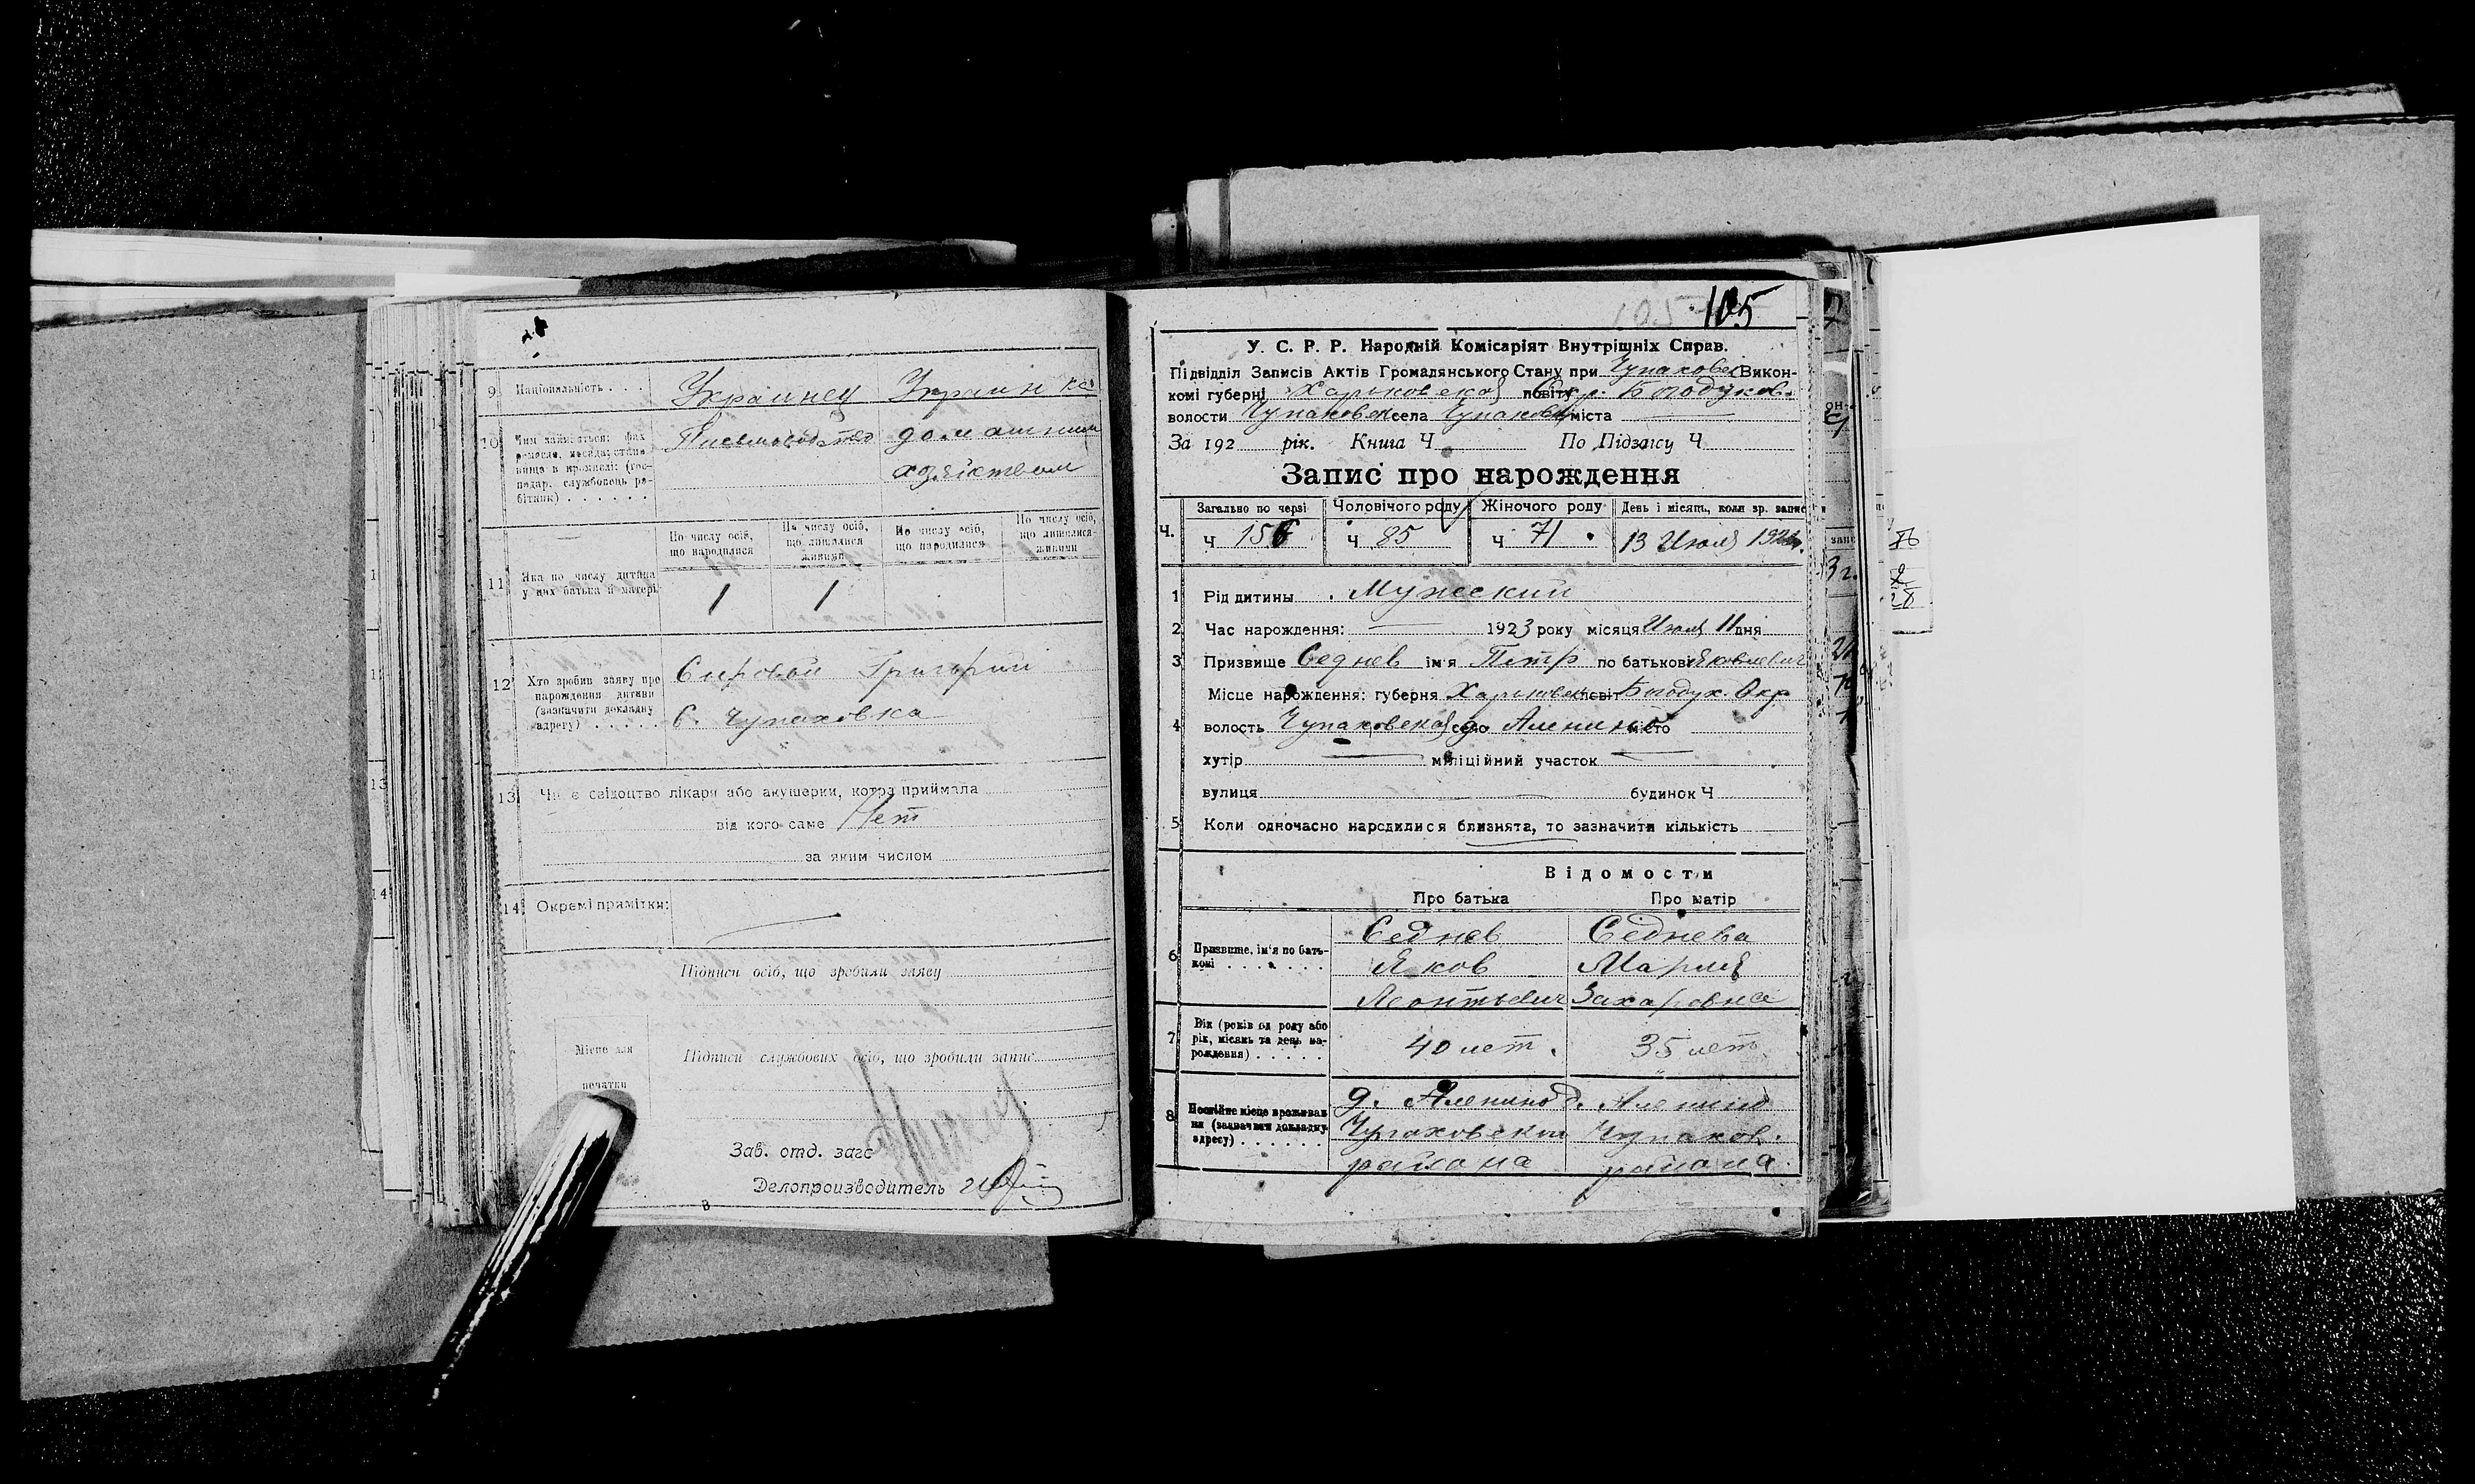 9 Національність . . . Украинец Украинка
10 Чим займається: фах
ремесло, посада; стано-
вище в промислі: (гос-
подар, службовець ро-
бітник) . . . . . .
Письмоводство домашним
хозяйством
11 Яка по числу дитина
у цих батька й матері
По числу осіб, що народилися
По числу осіб, що лишилися живими
По числу осіб, що народилися
По числу осіб, що лишилися живими
1 1
12 Хто зробив заяву про
народження дитини
(зазначити докладну
адресу) . . . . .
Сировой Григорий
С. Чупаховка
13 Чи є свідоцтво лікаря або акушерки, котра приймала
від кого саме Нет
за яким числом
14 Окремі примітки:
Підписи осіб, що зробили заяву
Місце для
печатки
Підписи службових осіб, що зробили запис
Зав. отд. загс
Делопроизводитель
В
105 105
У. С. Р. Р. Народній Комісаріят Внутрішніх Справ.
Підвідділ Записів Актів Громадянського Стану при Чупаховск Викон-
комі губерні Харьковской повіту Окр. Богодухов.
волости Чупаховск села Чупаховк міста
За 192 рік. Книга Ч По Підзагсу Ч
Запис про нарождення
Ч. Загально по черзі Чоловічого роду Жіночого роду День і місяць, коли зр. запис
Ч 156 Ч 85 Ч 71 13 Июля 1923.
1 Рід дитини Мужеский
2 Час нарождення: 1923 року місяця Июля 11 дня
3 Призвище Седнев ім'я Петр по батькові Яковлевич
4 Місце нарождення: губерня Харьковск повіт Богодух. Окр
волость Чупаховской село д. Аленино місто
хутір міліційний участок
вулиця будинок Ч
5 Коли одночасно народилися близнята, то зазначити кількість
Відомости
Про батька Про матір
6 Призвище, ім'я по бать-
кові . . . . . . .
Седнев Седнева
Яков Мария
Леонтьевич Захаровна
7 Вік (років од роду або
рік, місяць та день на-
рождення) . . . . .
40 лет. 35 лет
8 Постійне місце проживан-
ня (зазначити докладну
адресу) . . . . . .
д. Аленино д. Аленино
Чупаховский Чупахов.
района района